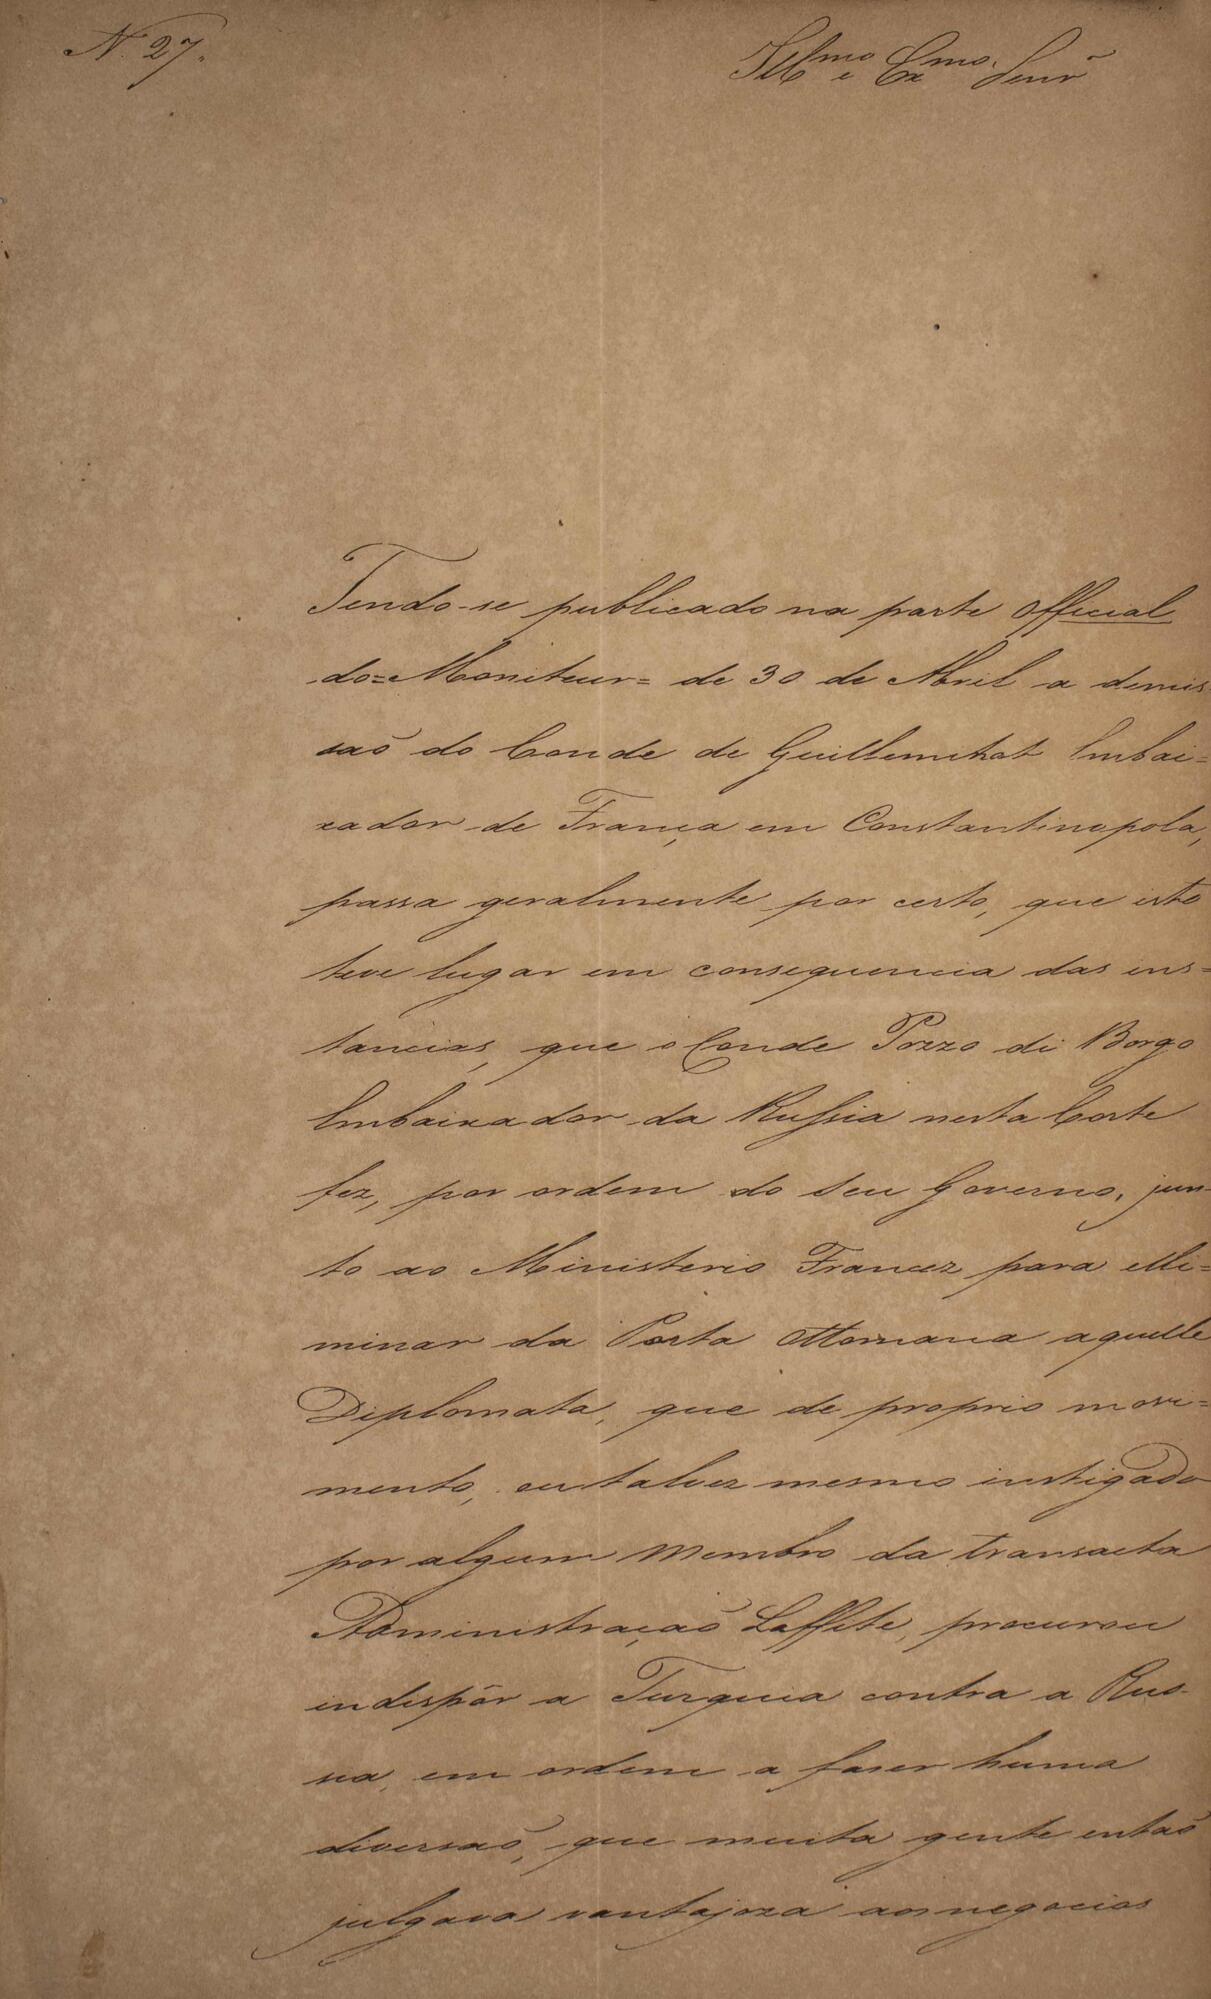 N. 27.
Illmo e Exmo. Senr̃
Tendo-se publicado na parte official
do=Moniteur= de 30 de Abril a demis
saõ do Conde de Guilleminot Embai=
xador de França em Constantinopola,
passa geralmente por certo, que isto
teve lugar em consequencia das ins=
tancias, que o Conde Pozzo di Borgo
Embaixador da Russia nesta Corte
fez, por ordem do seu Governo, jun-
to ao Ministerio Francez para elli=
minar da Porta Ottomana aquelle
Diplomata, que de proprio movi=
mento, ou talvez mesmo instigado
por algum Membro da transacta
Administraçaõ Laffite, procurou
indispôr a Turquia contra a Rus-
sia, em ordem a faser huma
diversaõ, que muita gente entaõ
julgava vantajoza aos negocios